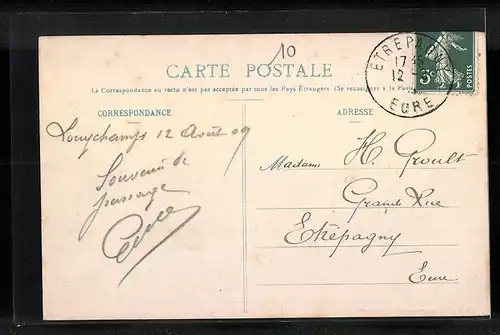 10
CARTE POSTALE
La Correspondance au recto n'est pas acceptée par tous les Pays Étrangers. (Se renseigner à la Poste)
CORRESPONDANCE
ADRESSE
ÉTREPAGNY
17
12
EURE
5c
POSTES
Longchamps 12 Août 09
Souvenir de
passage
Madame H. Groult
Grande Rue
Etrépagny
Eure